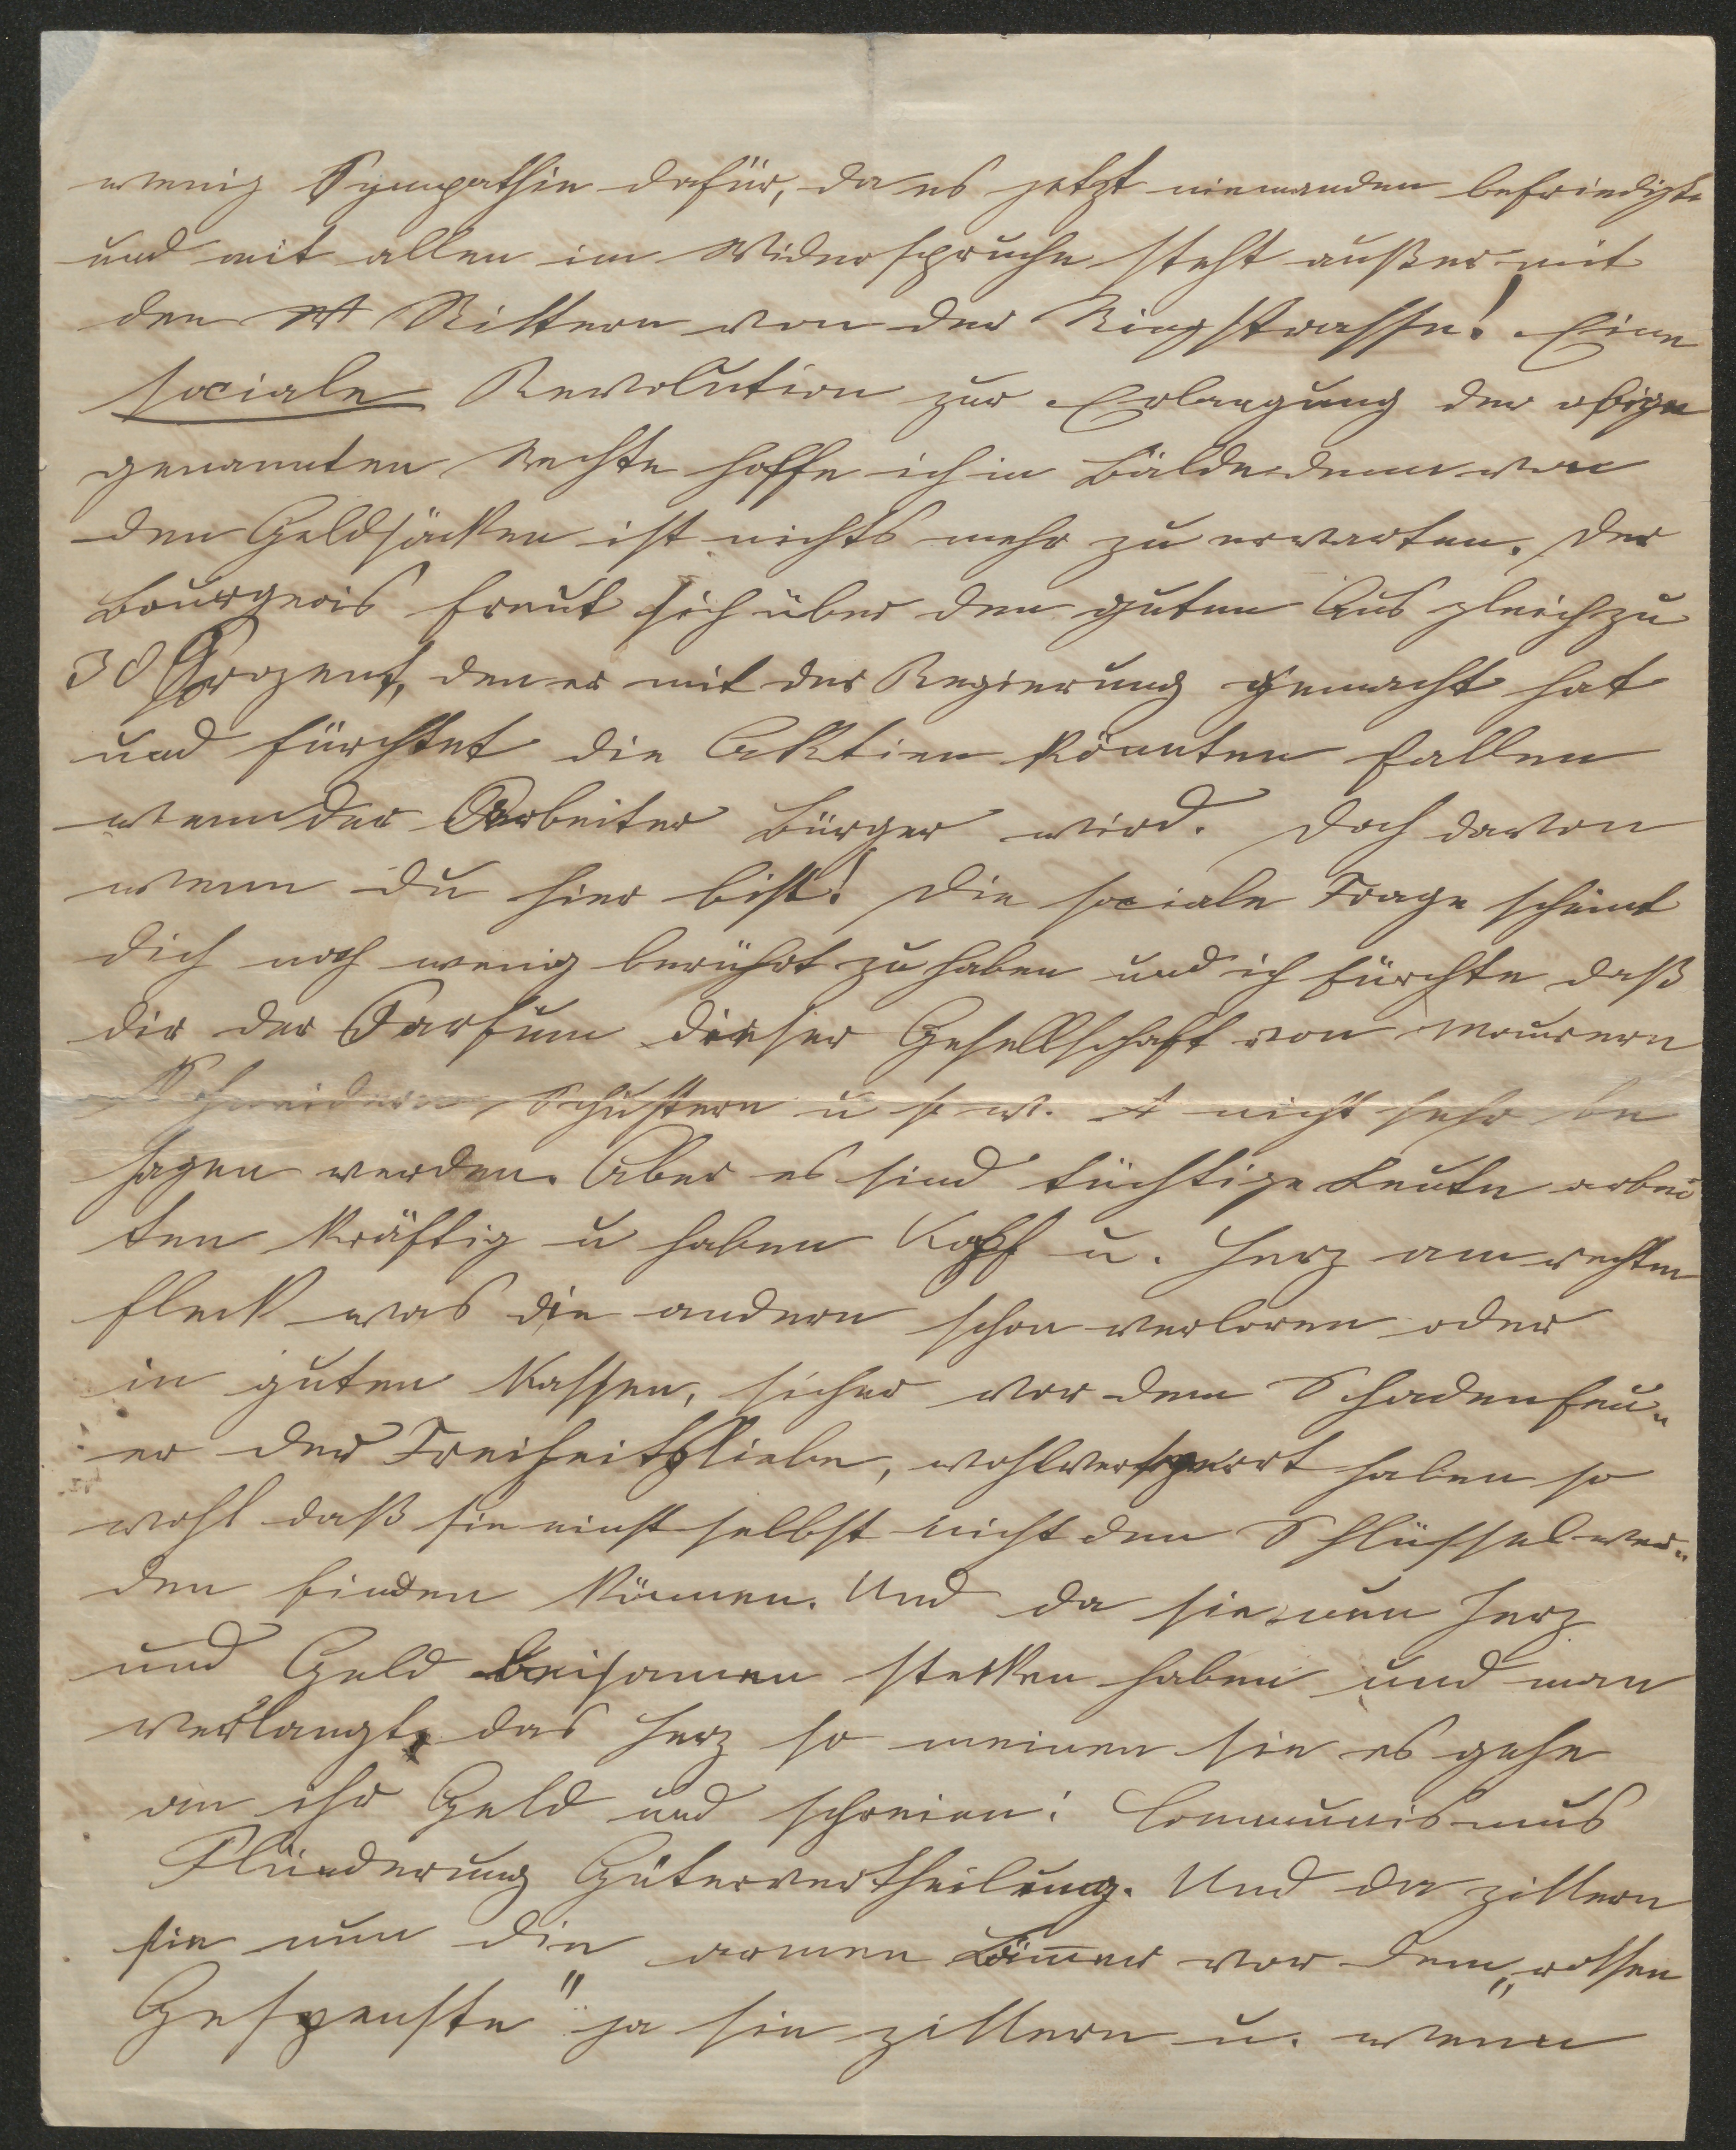 wenig Sympathie dafür, da es jetzt niemanden befriedigt
und mit allen im Widerspruche steht außer mit
den Rittern von der Ringstrasse! Eine
sociale Revolution zur Erlangung der obigen
genannten Rechte hoffe ich in Bälde denn von
den Geldsäcken ist nichts mehr zu erwarten. Der
Bourgeois freut sich über den guten Ausgleich zu
30 Prozent, den er mit der Regierung gemacht hat
und fürchtet die Aktien könnten fallen
wenn der Arbeiter Bürger wird. Doch davon
wenn du hier bist! Die sociale Frage scheint
dich noch wenig berührt zu haben und ich fürchte daß
dir der Parfum dieser Gesellschaft von Maurern
Schneidern, Schustern u s. w. nicht sehr be
hagen werden. Aber es sind tüchtige Leute arbei
ten kräftig u haben Kopf u. Herz am rechten
Fleck was die andern schon verloren oder
in guten Kassen, sicher vor dem Schadenfeu-
er der Freiheitsliebe, wohlversperrt haben so
wohl daß sie einst selbst nicht den Schlüssel wer-
den finden können. Und da sie nun Herz
und Geld beisamen stecken haben und man
verlangt das Herz so meinen sie es gehe
an ihr Geld und schreien: Communismus
Plünderung Gütervertheilung. Und da zittern
sie nun die armen Läm̅er vor dem „rothen
Gespenste" ja sie zittern u. wenn